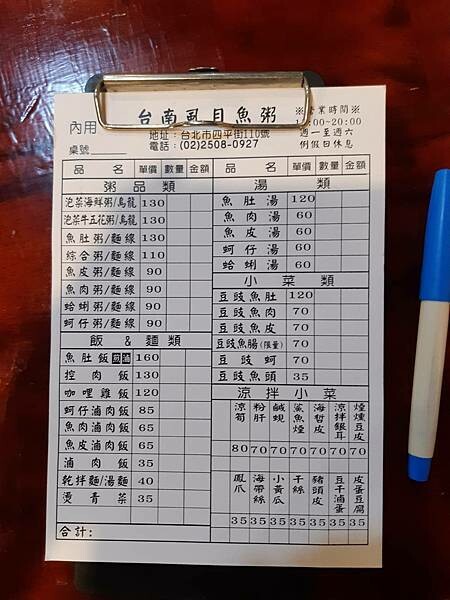 台南虱目魚粥
內用
桌號
地址：台北市四平街110號
電話：(02)2508-0927
※營業時間※
:00~20:00
週一至週六
例假日休息
品 名 單價 數量 金額
粥品類
泡菜海鮮粥/烏龍 130
泡菜牛五花粥/烏龍 130
魚肚粥/麵線 130
綜合粥/麵線 110
魚皮粥/麵線 90
魚肉粥/麵線 90
蛤蜊粥/麵線 90
蚵仔粥/麵線 90
飯 & 麵類
魚肚飯 160
控肉飯 130
咖哩雞飯 120
蚵仔滷肉飯 85
魚肉滷肉飯 65
魚皮滷肉飯 65
滷肉飯 35
乾拌麵/湯麵 40
燙青菜 35
合計:
品 名 單價 數量 金額
湯類
魚肚湯 120
魚肉湯 60
魚皮湯 60
蚵仔湯 60
蛤蜊湯 60
小菜類
豆豉魚肚 120
豆豉魚肉 70
豆豉魚皮 70
豆豉魚腸(限量) 70
豆豉蚵 70
豆豉魚頭 35
涼拌小菜
涼筍 80
粉肝 70
鹹蜆 70
鯊魚煙 70
海哲皮 70
涼拌銀耳 70
煙燻豆皮 70
鳳爪 35
海帶絲 35
小黃瓜 35
干絲 35
豬頭皮 35
豆干滷蛋 35
皮蛋豆腐 35